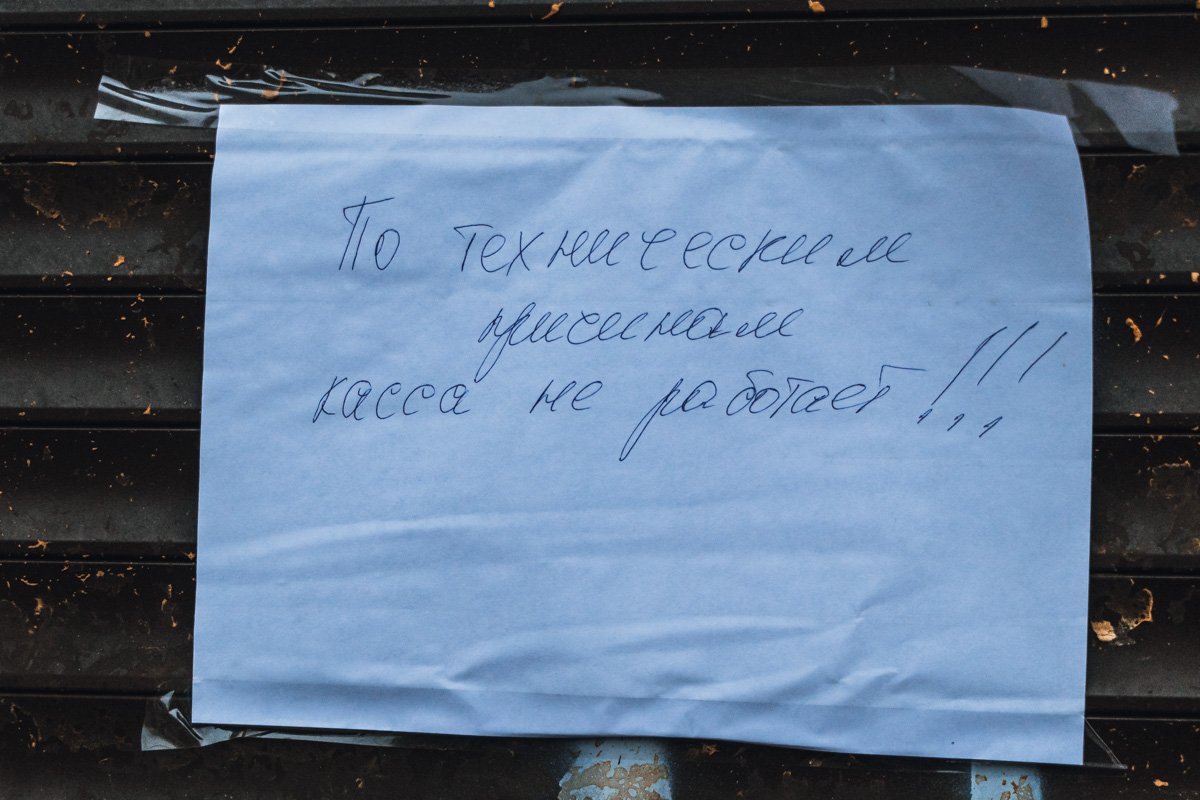 По техническим
причинам
касса не работает!!!